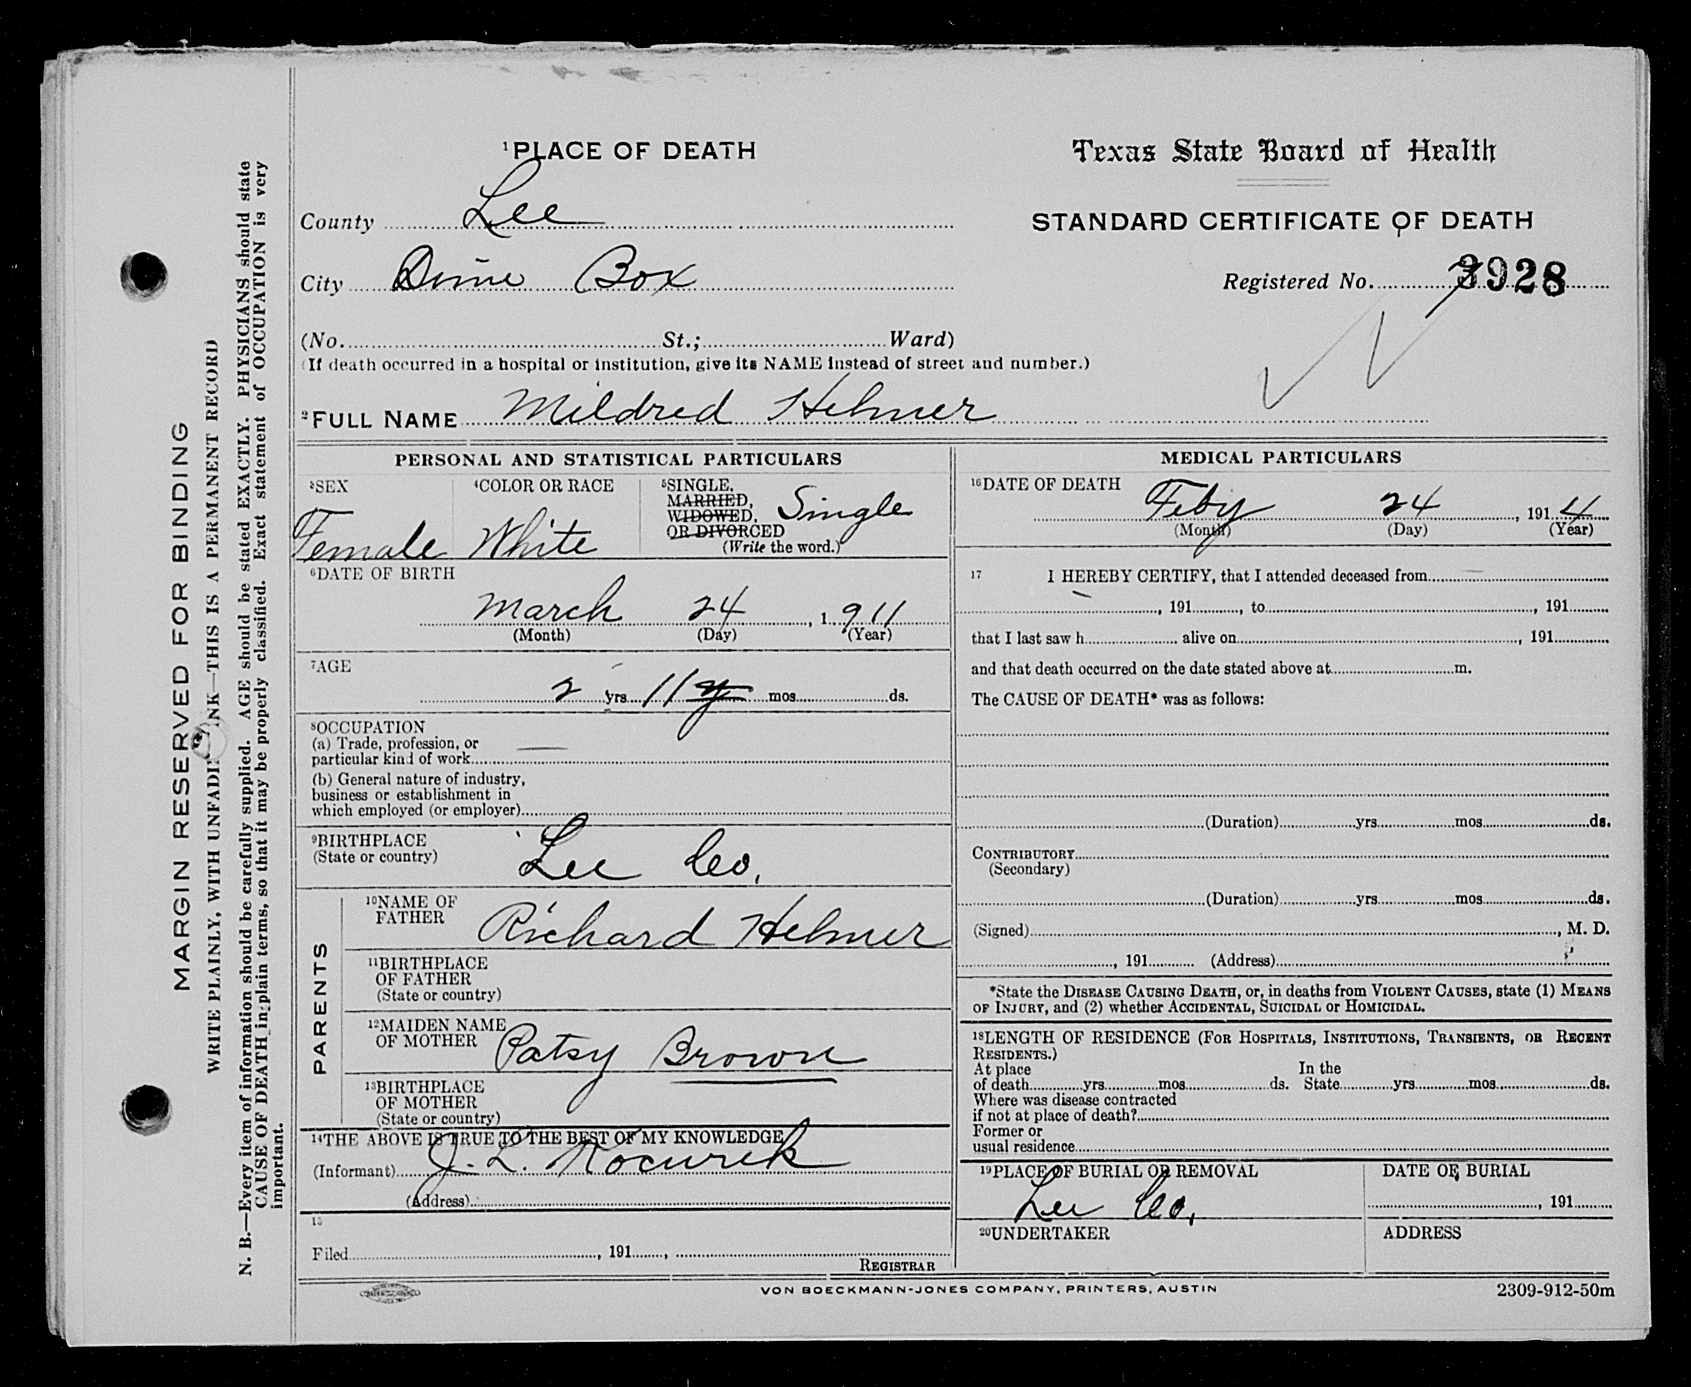 MARGIN RESERVED FOR BINDING
WRITE PLAINLY, WITH UNFADING INK—THIS IS A PERMANENT RECORD
N. B.—Every item of information should be carefully supplied. AGE should be stated EXACTLY. PHYSICIANS should state
CAUSE OF DEATH in plain terms, so that it may be properly classified. Exact statement of OCCUPATION is very
important.
1 PLACE OF DEATH
Texas State Board of Health
County Lee
STANDARD CERTIFICATE OF DEATH
City Dime Box
Registered No. 3928
(No. St.; Ward)
(If death occurred in a hospital or institution, give its NAME instead of street and number.)
2 FULL NAME Mildred Helmer
PERSONAL AND STATISTICAL PARTICULARS
3 SEX
Female
4 COLOR OR RACE
White
5 SINGLE,
MARRIED,
WIDOWED,
OR DIVORCED
(Write the word.)
Single
6 DATE OF BIRTH
March 24, 1911
(Month) (Day) (Year)
7 AGE
2 yrs 11 mos ds.
8 OCCUPATION
(a) Trade, profession, or
particular kind of work
(b) General nature of industry,
business or establishment in
which employed (or employer)
9 BIRTHPLACE
(State or country)
Lee Co.
PARENTS
10 NAME OF
FATHER
Richard Helmer
11 BIRTHPLACE
OF FATHER
(State or country)
12 MAIDEN NAME
OF MOTHER
Patsy Brown
13 BIRTHPLACE
OF MOTHER
(State or country)
14 THE ABOVE IS TRUE TO THE BEST OF MY KNOWLEDGE
(Informant) J. L. Kocurek
(Address)
15
Filed , 191 ,
REGISTRAR
MEDICAL PARTICULARS
16 DATE OF DEATH
Feby 24, 1914
(Month) (Day) (Year)
17 I HEREBY CERTIFY, that I attended deceased from
, 191 , to , 191
that I last saw h alive on , 191
and that death occurred on the date stated above at m.
The CAUSE OF DEATH* was as follows:
(Duration) yrs mos ds.
CONTRIBUTORY
(Secondary)
(Duration) yrs mos ds.
(Signed) , M. D.
, 191 (Address)
*State the DISEASE CAUSING DEATH, or, in deaths from VIOLENT CAUSES, state (1) MEANS
OF INJURY, and (2) whether ACCIDENTAL, SUICIDAL or HOMICIDAL.
18 LENGTH OF RESIDENCE (FOR HOSPITALS, INSTITUTIONS, TRANSIENTS, OR RECENT
RESIDENTS.)
At place In the
of death yrs mos ds. State yrs mos ds.
Where was disease contracted
if not at place of death?
Former or
usual residence
19 PLACE OF BURIAL OR REMOVAL
Lee Co.
DATE OF BURIAL
, 191
20 UNDERTAKER
ADDRESS
VON BOECKMANN-JONES COMPANY, PRINTERS, AUSTIN
2309-912-50m